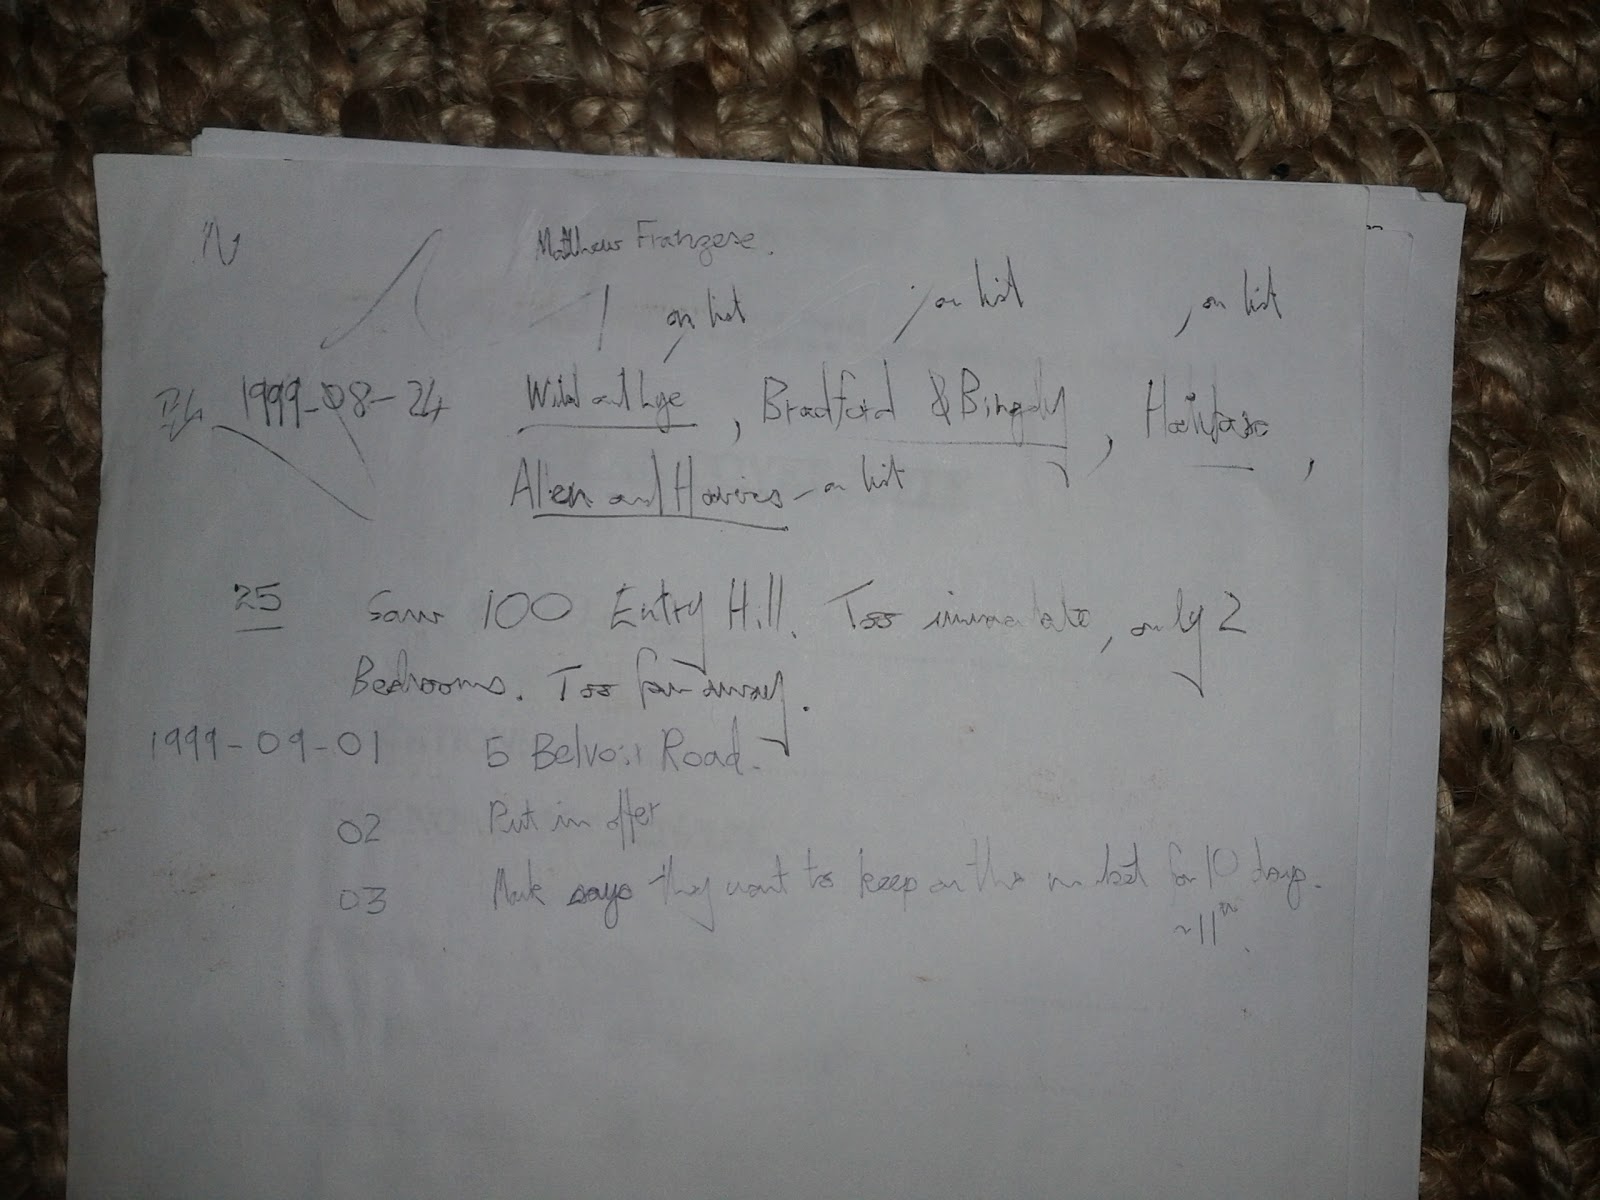 Matthew Franzese.
on list on list on list
1999-08-24 Wild and Lye, Bradford & Bingley, Halifax,
Allen and Harris - on list
25 Saw 100 Entry Hill. Too immaculate, only 2
Bedrooms. Too far away.
1999-09-01 5 Belvoir Road.
02 Put in offer
03 Mark says they want to keep on the market for 10 days.
~11th.